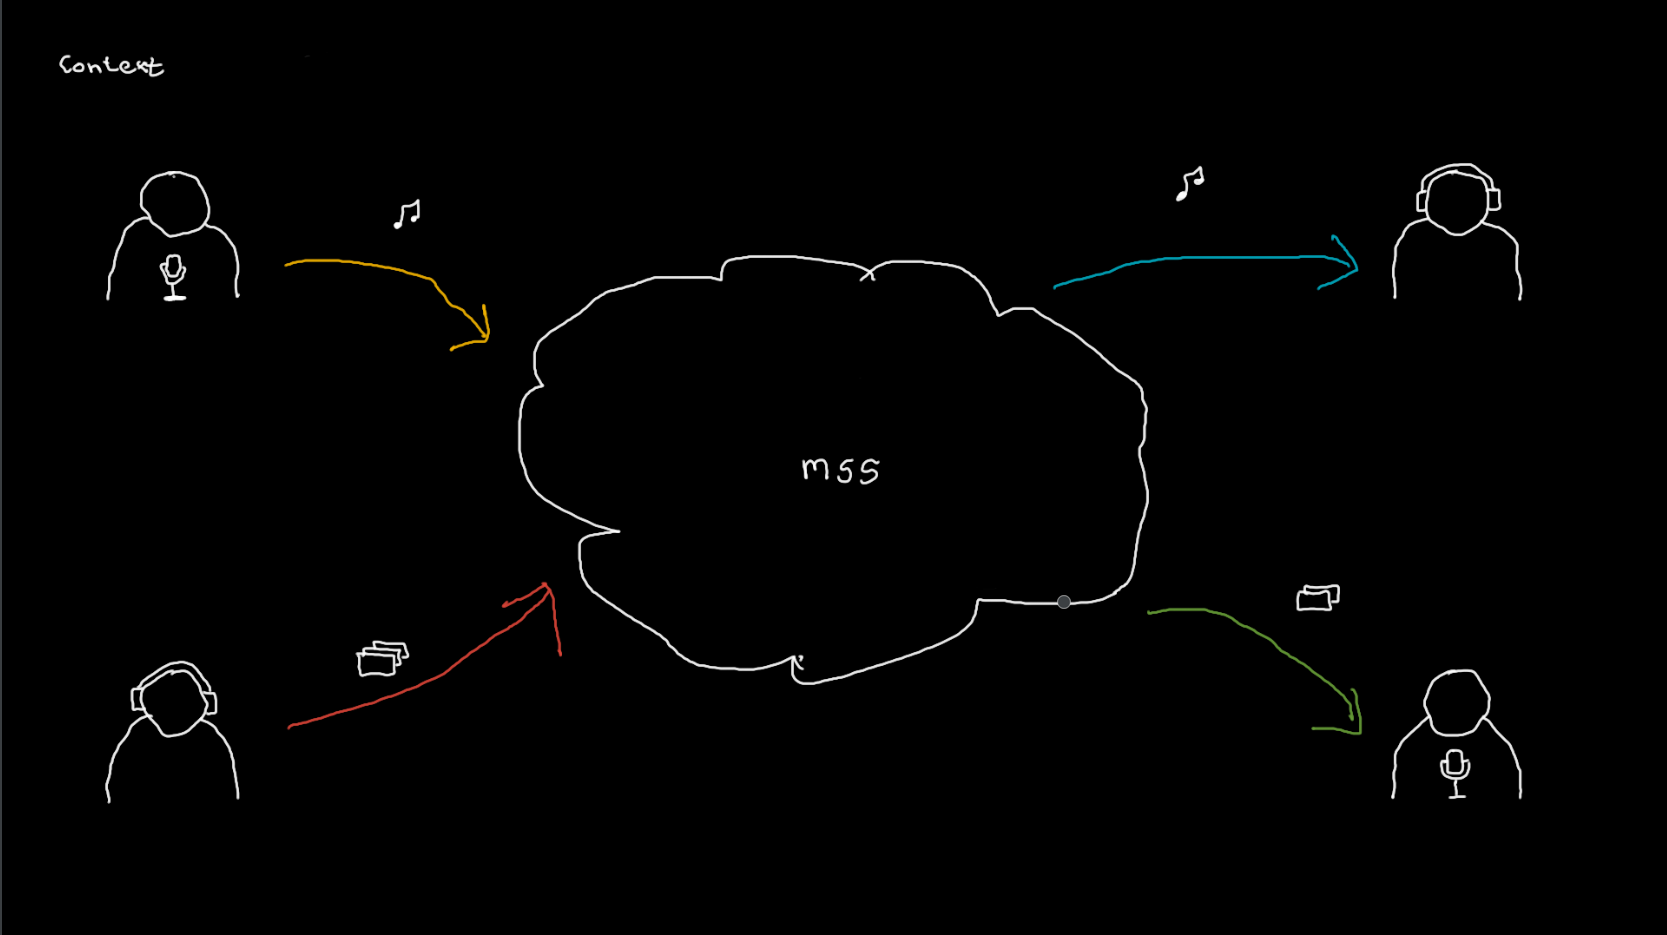 Context
mss